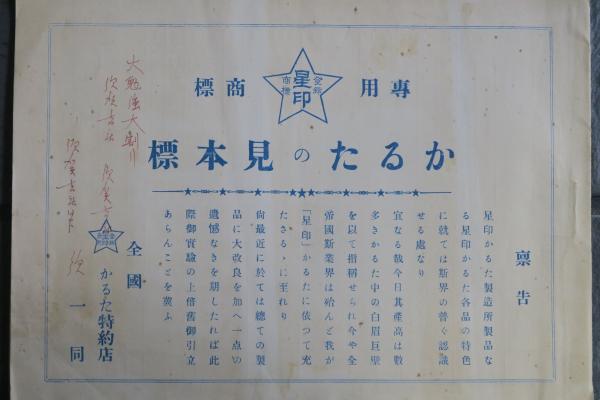 専用
商標
登録
商標
星印
かるたの見本標
禀告
星印かるた製造所製品な
る星印かるた各品の特色
に就ては斯界の普く認識
せる處なり
宜なる哉今日其産高は數
多きかるた中の白眉巨璧
を以て指稱せられ今や全
帝國斯業界は殆んど我が
「星印」かるたに依つて充
たさるゝに至れり
尙最近に於ては總ての製
品に大改良を加へ一点の
遺憾なきを期したれば此
際御實驗の上倍舊御引立
あらんことを冀ふ
全國
かるた特約店
一同